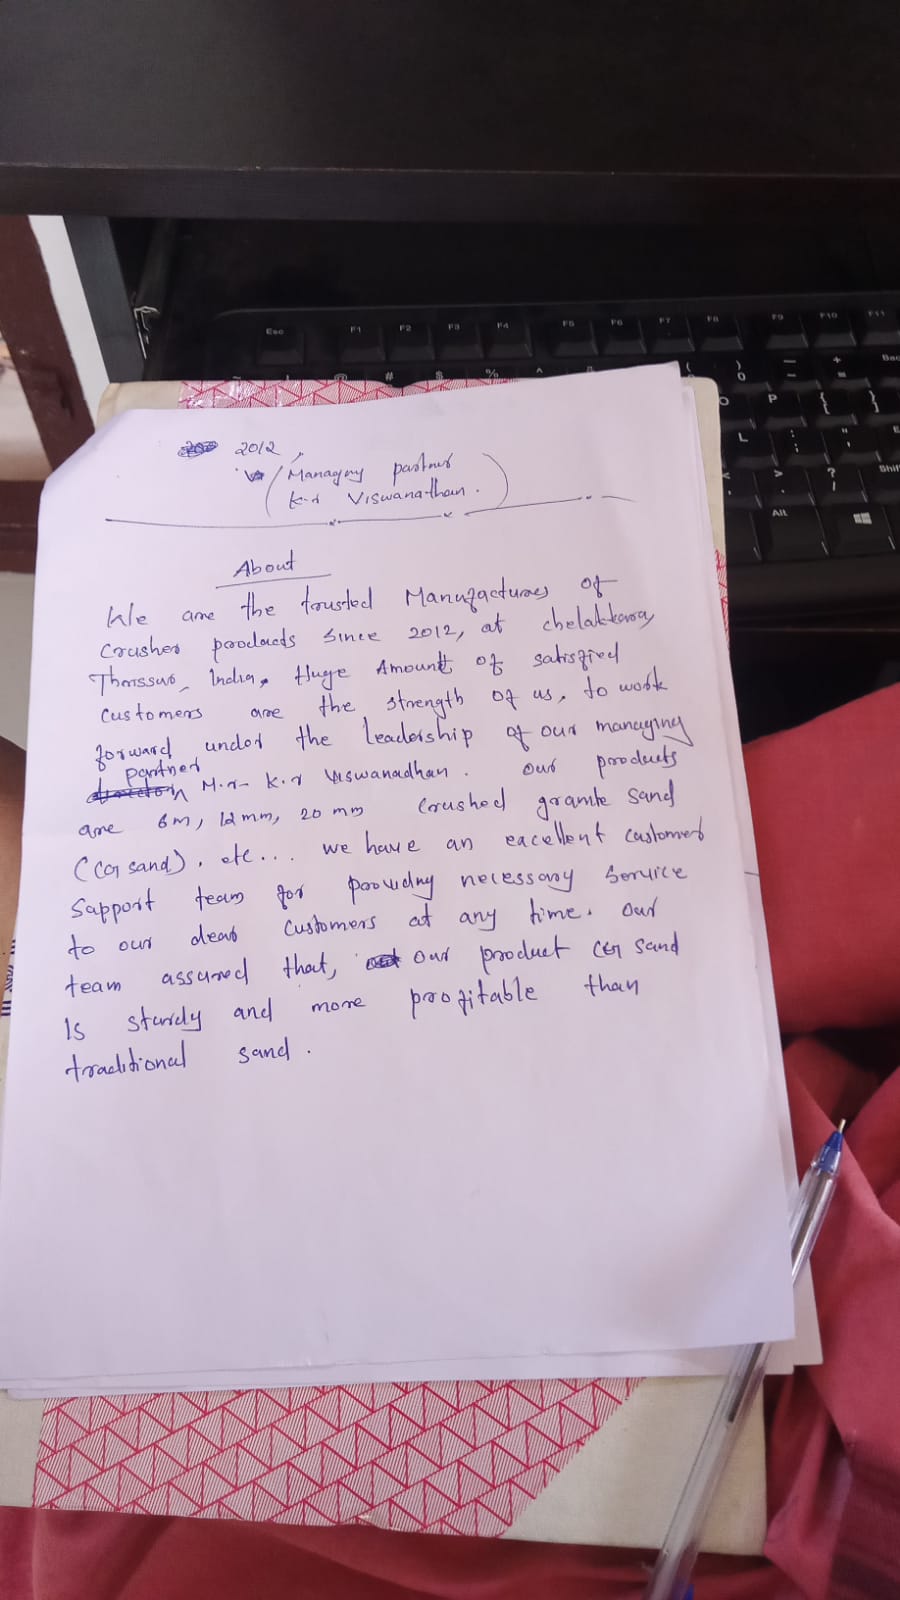 2012
Managing partner
K.r Viswanathan.
About
We are the trusted Manufactures of
Crusher products since 2012, at chelakkara,
Thrissur, India. Huge Amount of satisfied
customers are the strength of us, to work
forward under the leadership of our managing
partner
Mr. K.r Viswanadhan. our products
are 6m, 12mm, 20 mm crushed granite sand
(CG sand). etc... we have an excellent customer
Support team for providing necessary service
to our dear customers at any time. our
team assured that, our product CG sand
Is sturdy and more profitable than
traditional sand.
Esc F1 F2 F3 F4 F5 F6 F7 F8 F9 F10 F11
# $ % ^ ( ) 0 _ - + = Bac
O P { }
L : ; " '
< > . ? / Shif
Alt